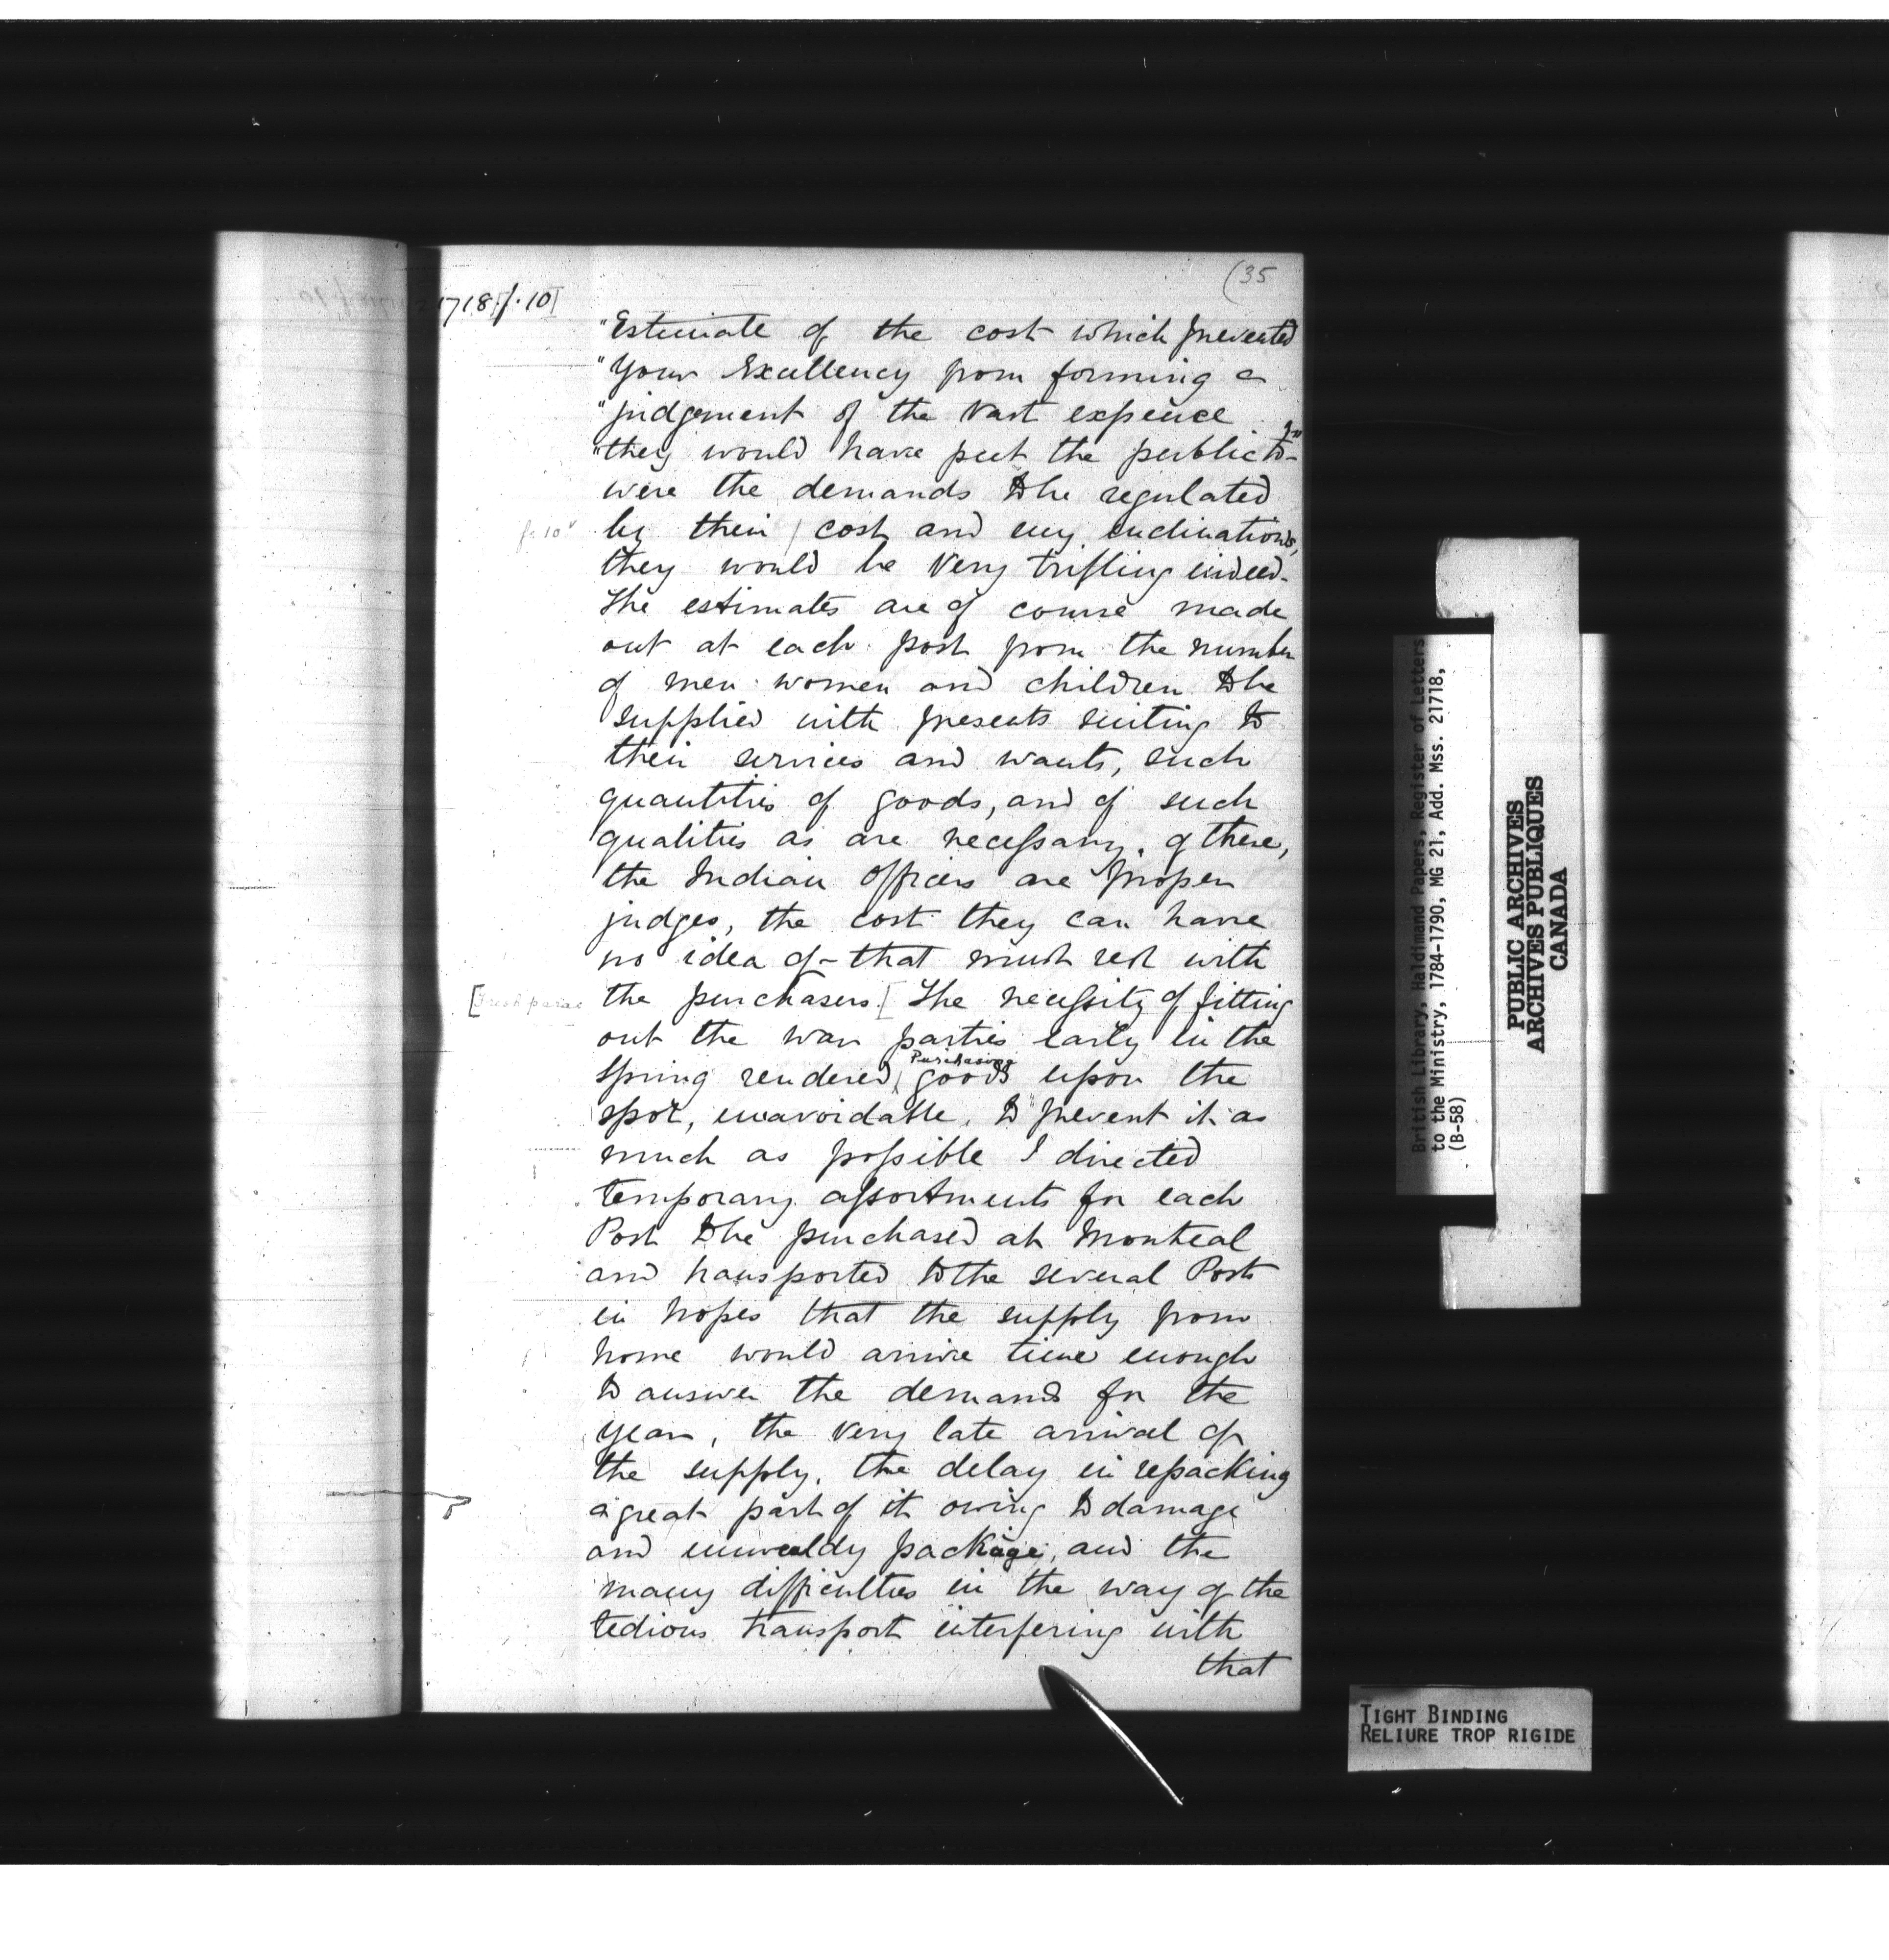 (35
21718, f. 10]
"Estimate of the cost which prevented
"Your Excellency from forming a
"judgement of the vast expence
"they would have put the public to"-
were the demands to be regulated
f. 10v by their / cost and my inclinations,
they would be very trifling indeed-
The estimates are of course made
out at each post from the number
of men women and children to be
supplied with presents suiting to
their services and wants, such
quantities of goods, and of such
qualities as are necessary. of these,
the Indian Officers are proper
judges, the cost they can have
no idea of - that must rest with
[fresh parae the purchasers. [The necessity of fitting
out the war parties early in the
Purchasing
spring rendered goods upon the
spot, unavoidable. to prevent it as
much as possible I directed
temporary assortments for each
Post to be purchased at Montreal
and transported to the several Posts
in hopes that the supply from
home would arrive time enough
to answer the demands for the
year, the very late arrival of
the supply. the delay in repacking
a great part of it owing to damage
and unwealdy package, and the
many difficulties in the way of the
tedious transport interfering with
that
British Library, Haldimand Papers, Register of Letters
to the Ministry, 1784-1790, MG 21, Add. Mss. 21718,
(B-58)
PUBLIC ARCHIVES
ARCHIVES PUBLIQUES
CANADA
TIGHT BINDING
RELIURE TROP RIGIDE